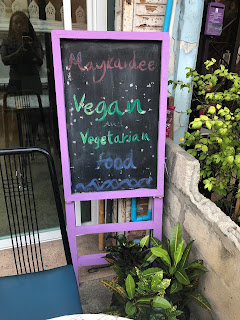 Maykaidee
Vegan
and
Vegetarian
Food